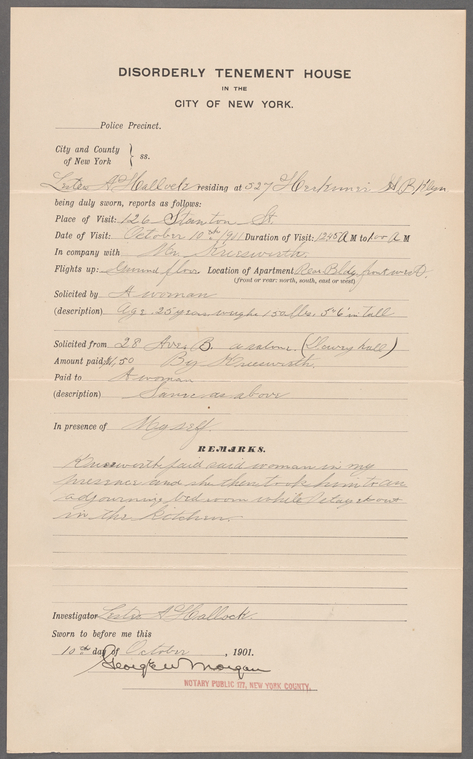 DISORDERLY TENEMENT HOUSE
IN THE
CITY OF NEW YORK.
Police Precinct.
City and County
of New York } ss.
Lester A Hallock residing at 527 Herkimer St B'klyn
being duly sworn, reports as follows:
Place of Visit: 126 Stanton St.
Date of Visit: October 10th 1901 Duration of Visit: 1245 A M to 1.00 A M
In company with Mr. Kneeworth.
Flights up: Ground floor Location of Apartment Rear Bldg. front west.
(front or rear: north, south, east or west)
Solicited by A woman
(description) Age 25 years, weighs 150 lbs. 5'6" in tall
Solicited from 28 Ave. B a saloon. ( hall)
Amount paid; $1.50 By Kneeworth.
Paid to A woman
(description) Same as above
In presence of Myself.
REMARKS.
Kneeworth paid said woman in my
presence and she then took him to an
adjourning bedroom while I stayed out
in the kitchen.
Investigator Lester A Hallock.
Sworn to before me this
10th day of October, 1901.
George W Morgan
NOTARY PUBLIC, NEW YORK COUNTY.